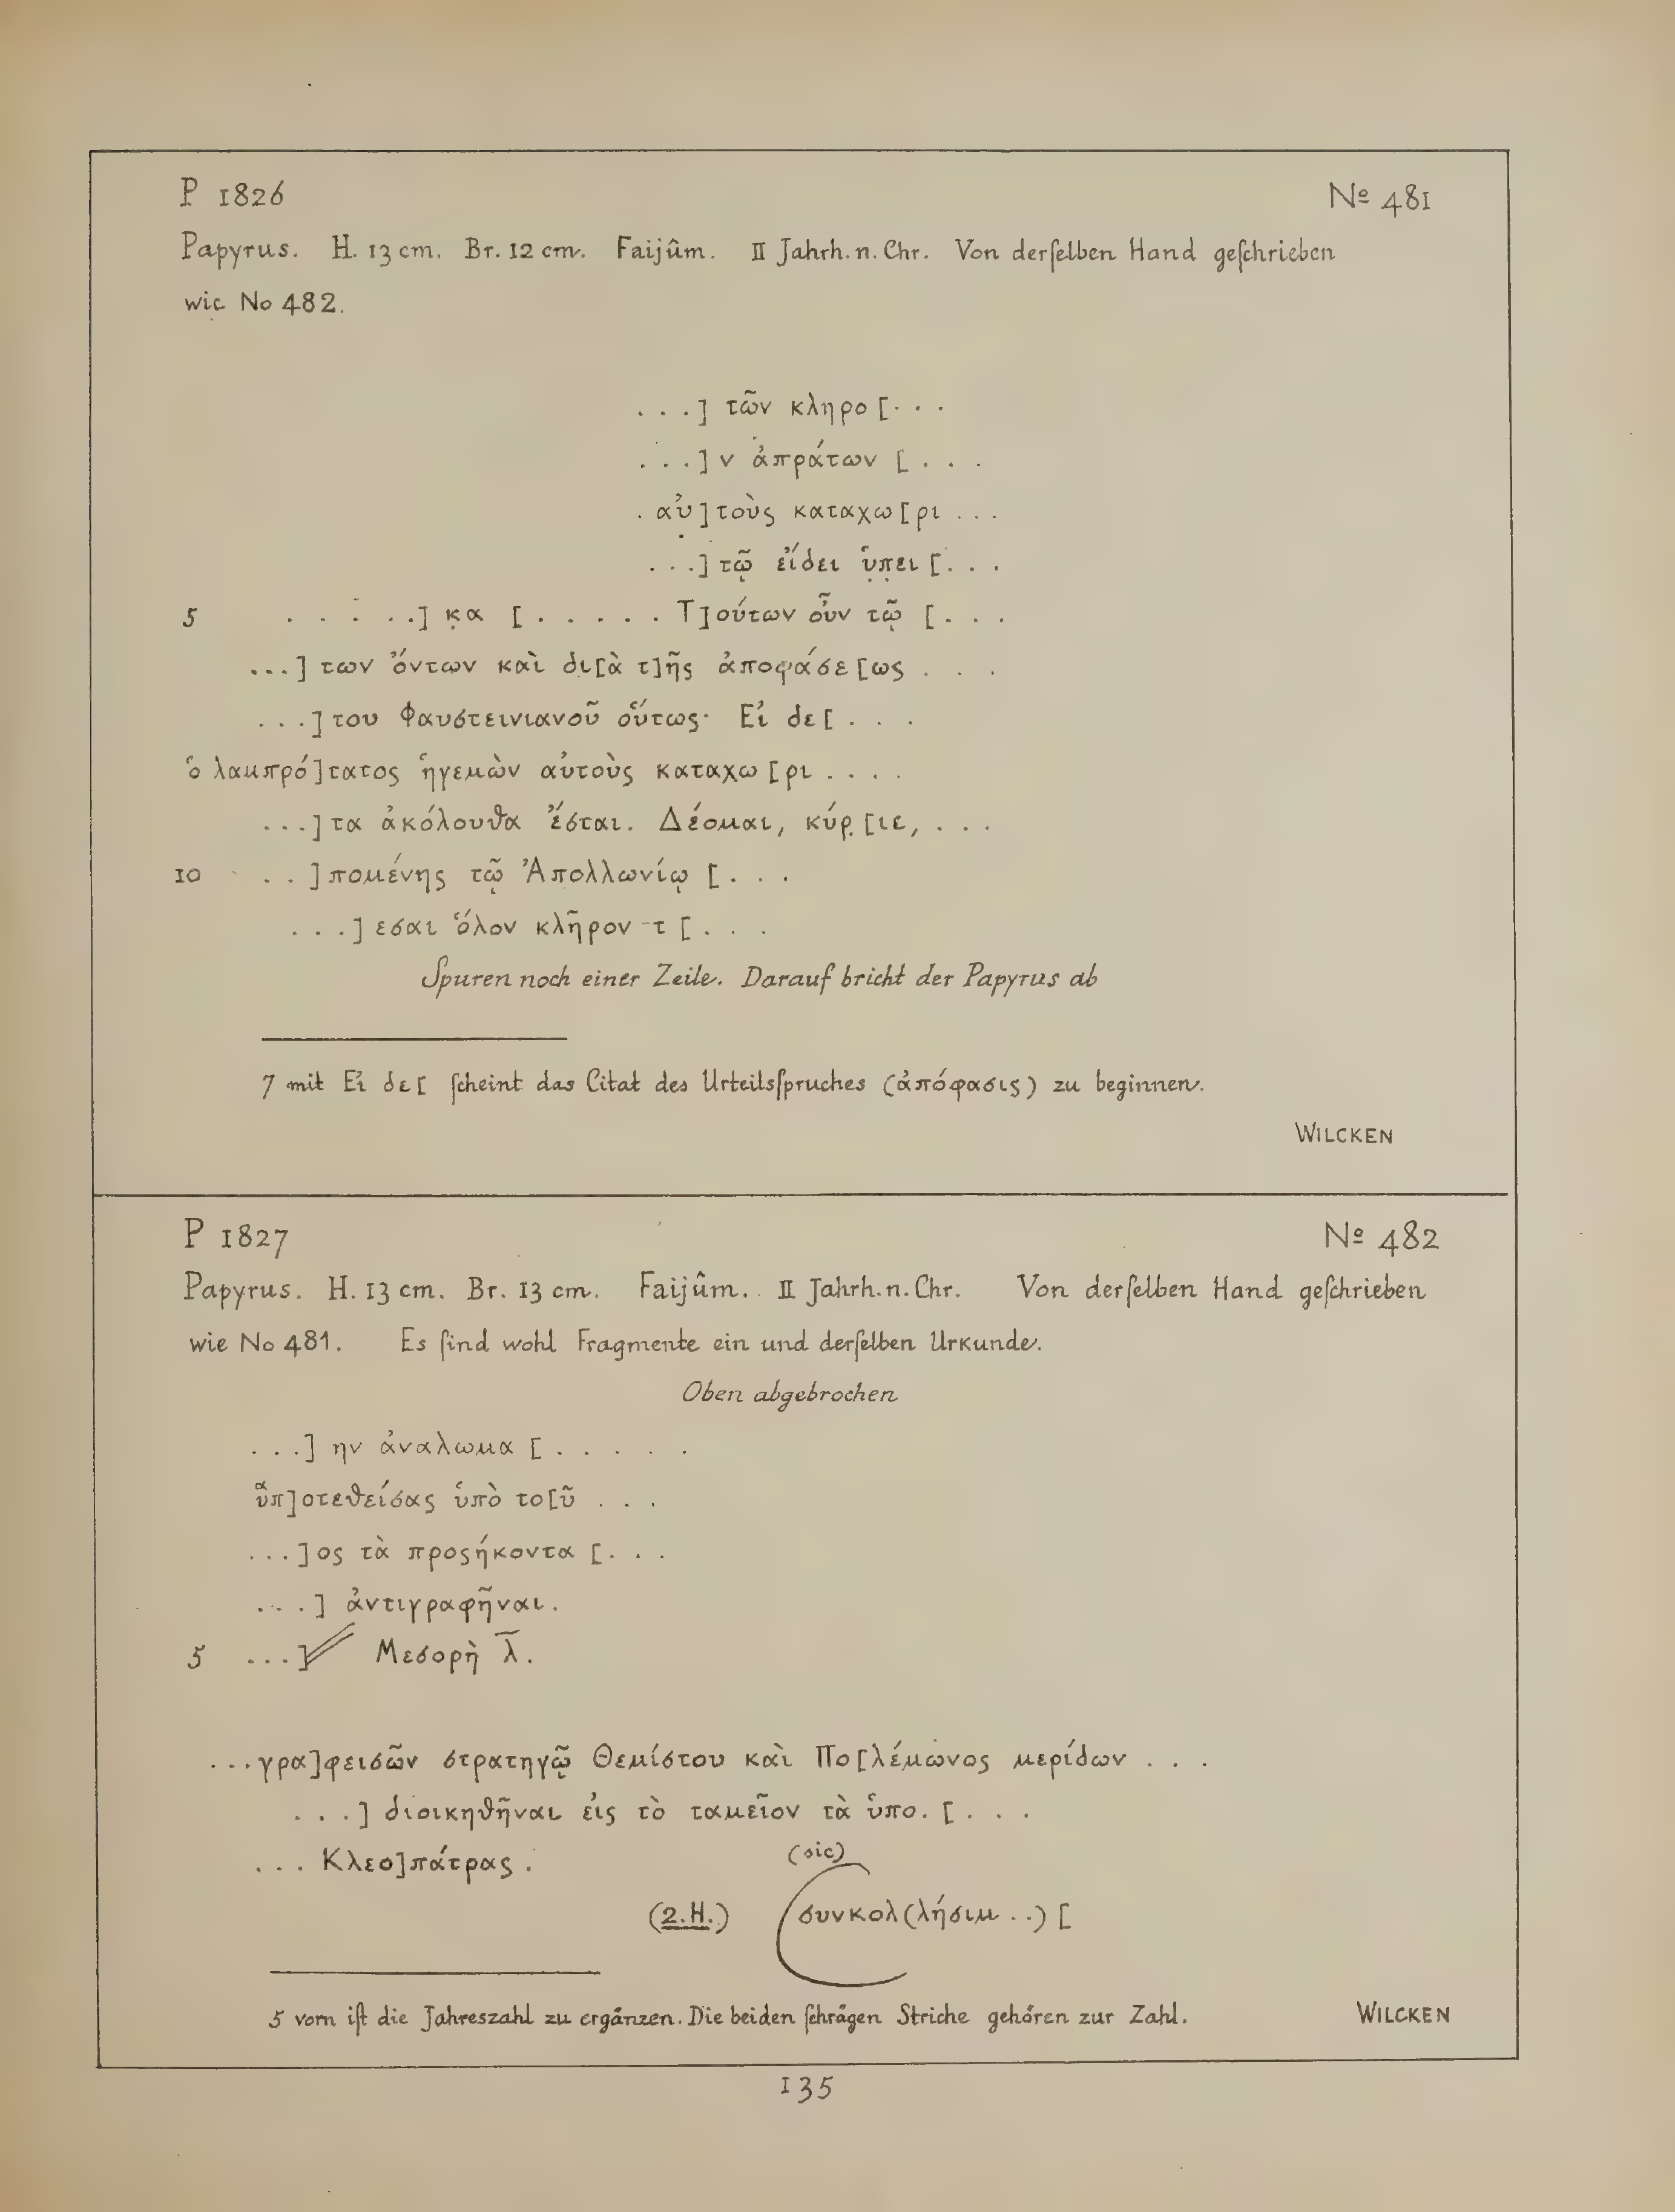 P 1826 № 481
Papyrus. H. 13 cm. Br. 12 cm. Faijûm. II Jahrh. n. Chr. Von derſelben Hand geſchrieben
wie No 482.
. . .] τῶν κληρο [. . .
. . .] ν ἀπράτων [. . .
. αὐ]τοὺς καταχω[ρι . . .
. . .] τῷ εἴδει ὑ̣π̣ει [. . .
5 . . . . .] κ̣α [. . . . . . Τ]ούτων οὖν τῷ [. . .
. . .] των ὄντων καὶ δι[ὰ τ]ῆς ἀποφάσε[ως . . .
. . .] του Φαυστεινιανοῦ οὕτως· Εἰ δε[ . . .
ὁ λαμπρό]τατος ἡγεμὼν αὐτοὺς καταχω[ρι . . . .
. . .] τα ἀκόλουθα ἔσται. Δέομαι, κύρ̣[ιε, . . .
10 . . ]πομένης τῷ Ἀπολλωνίῳ [. . .
. . .] εσαι ὅλον κλῆρον τ [. . .
Spuren noch einer Zeile. Darauf bricht der Papyrus ab
7 mit Εἰ δε[ ſcheint das Citat des Urteilsſpruches (ἀπόφασις) zu beginnen.
WILCKEN
P 1827 № 482
Papyrus. H. 13 cm. Br. 13 cm. Faijûm. II Jahrh. n. Chr. Von derſelben Hand geſchrieben
wie No 481. Es ſind wohl Fragmente ein und derſelben Urkunde.
Oben abgebrochen
. . .] ην ἀναλωμα [. . . . .
ὑπ]οτεθείσας ὑπὸ το[ῦ . . .
. . .]ος τὰ προςήκοντα [. . .
. . .] ἀντιγραφῆναι.
5 . . .]// Μεσορὴ λ̅.
. . . γρα]φεισῶν στρατηγῷ Θεμίστου καὶ Πο[λέμωνος μερίδων . . .
. . .] διοικηθῆναι εἰς τὸ ταμεῖον τὰ ὑπο. [. . .
. . . Κλεο]πάτρας.
(sic)
(2.H.) συνκολ(λήσιμ . .) [
5 vorn iſt die Jahreszahl zu ergänzen. Die beiden ſchrägen Striche gehören zur Zahl. WILCKEN
135